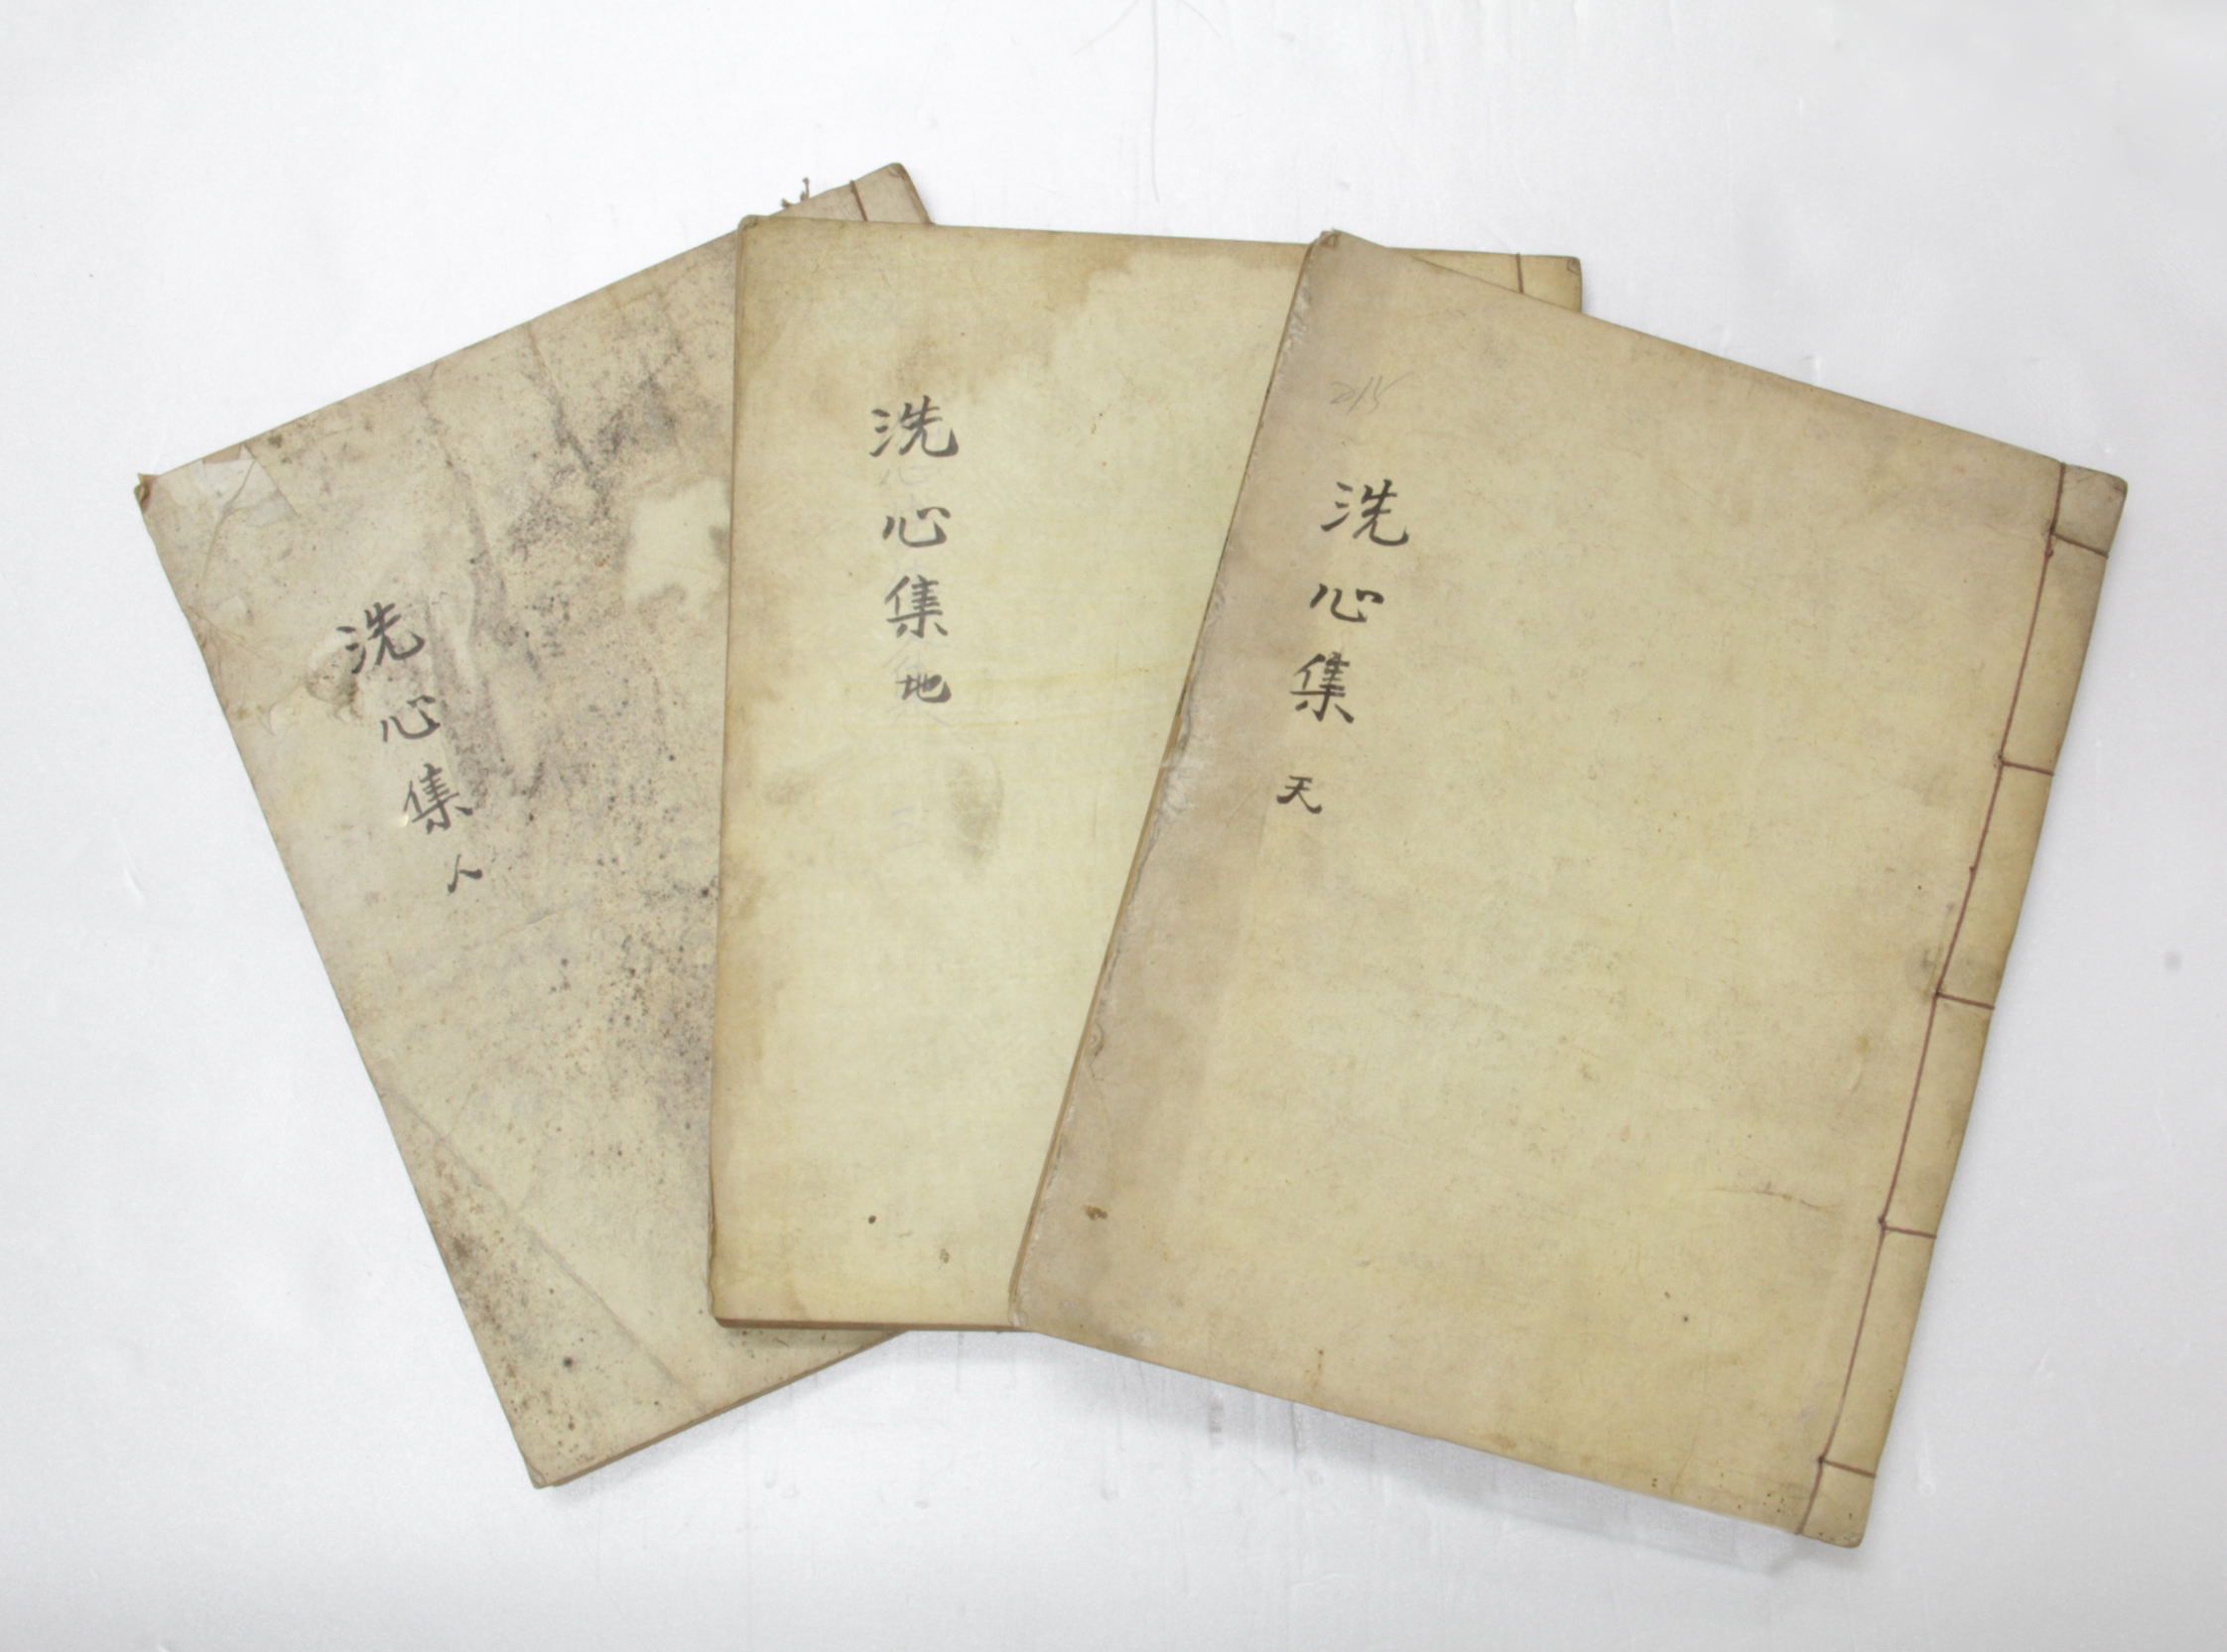 洗心集 天
洗心集 地
洗心集 人